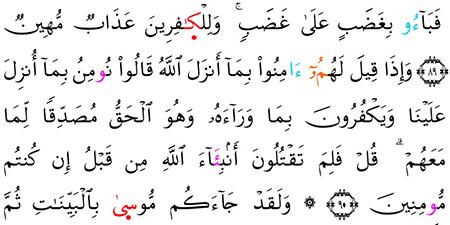 فَبَآءُو بِغَضَبٍ عَلَىٰ غَضَبٍۚ وَلِلْكَٰفِرِينَ عَذَابٌ مُّهِينٌ
﴿٨٩﴾ وَإِذَا قِيلَ لَهُمُۥٓ ءَامِنُواْ بِمَآ أَنزَلَ اللَّهُ قَالُواْ نُومِنُ بِمَآ أُنزِلَ
عَلَيْنَا وَيَكْفُرُونَ بِمَا وَرَآءَهُۥ وَهُوَ الْحَقُّ مُصَدِّقًا لِّمَا
مَعَهُمْۗ قُلْ فَلِمَ تَقْتُلُونَ أَنۢبِئَآءَ اللَّهِ مِن قَبْلُ إِن كُنتُم
مُّومِنِينَ ﴿٩٠﴾ ۞ وَلَقَدْ جَآءَكُم مُّوسَىٰ بِالْبَيِّنَٰتِ ثُمَّ